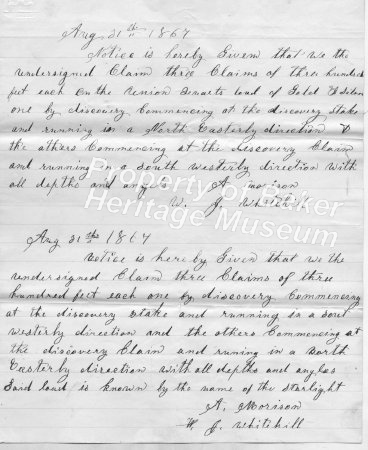 Aug 31th 1867
Notice is hereby Given that we the
undersigned Claim three Claims of three hundred
feet each on the Union Quarts load of Gold & Silver
one by discovery Commencing at the discovery stake
and running in a North Easterly direction &
the others Commencing at the Discovery Claim
and running in a South Westerly direction with
all depths and angles A. Morison
W. J. Whitehill
Property of Baker
Heritage Museum
Aug 31th 1867
Notice is hereby Given that we the
undersigned Claim three Claims of three
hundred feet each one by discovery Commencing
at the discovery stake and running in a South
westerly direction and the others Commencing at
the discovery Claim and runing in a North
Easterly direction with all depths and angles
Said load is known by the name of the Starlight
A. Morison
W. J. Whitehill